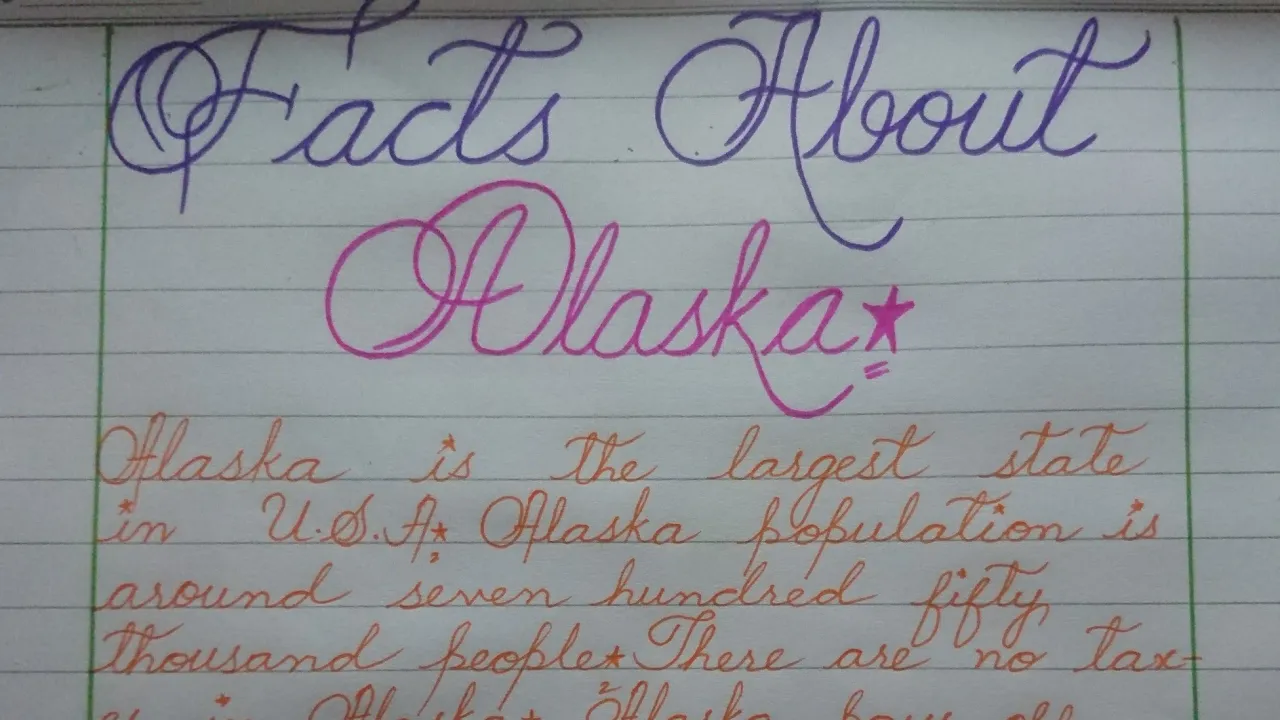 Facts About
Alaska★
Alaska is the largest state
in U.S.A★ Alaska population is
around seven hundred fifty
thousand people★ There are no tax-
es in Alaska★ Alaska